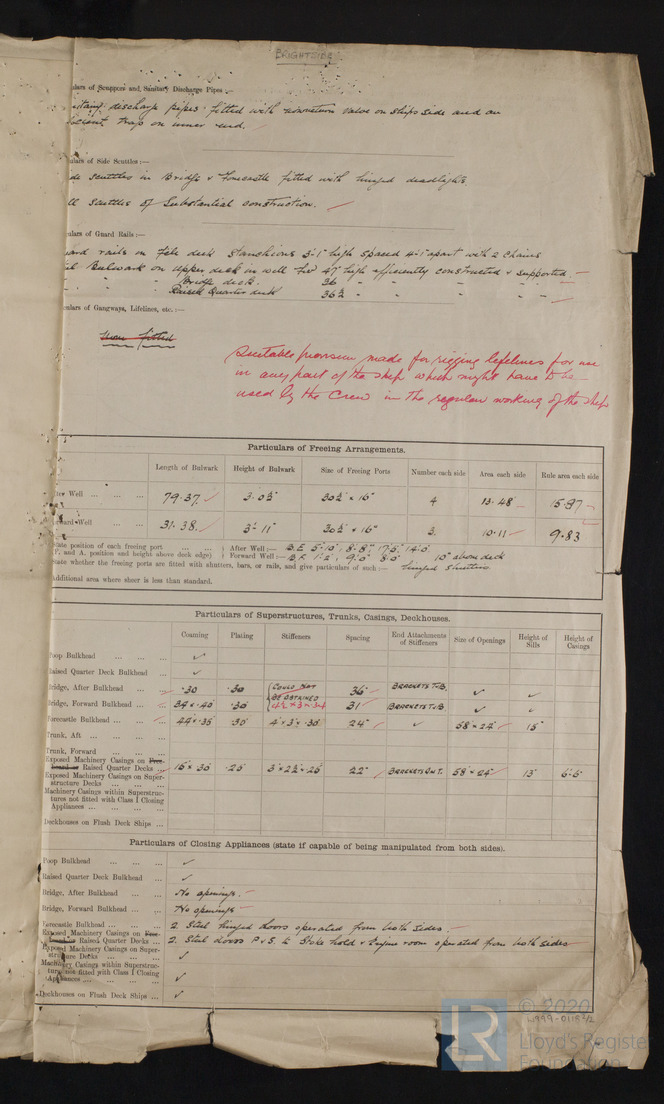 BRIGHTSIDE
ulars of Scuppers and Sanitary Discharge Pipes :—
discharge pipes fitted with nonreturn valve on ships side and an
trap on inner end.
ulars of Side Scuttles :—
de scuttles in Bridge & Forecastle fitted with hinged deadlights.
ll scuttles of Substantial construction.
ulars of Guard Rails :—
uard rails on Fcle deck stanchions 3'-1" high spaced 4'-1" apart with 2 chains
Bulwark on upper deck in well 47" high efficiently constructed & supported.
" " " Bridge deck. 36 " " " "
Raised Quarter deck 36½ " " " "
culars of Gangways, Lifelines, etc. :—
None fitted
Suitable provision made for rigging lifelines for use
in any part of the ship which might have to be
used by the crew in the regular working of the ship
Particulars of Freeing Arrangements.
Length of Bulwark Height of Bulwark Size of Freeing Ports Number each side Area each side Rule area each side
ter Well ... ... ... 79.37 3'.0½" 30½" × 16" 4 13.48 15.97
rward Well ... ... 31.38 3'-11" 30½" × 16" 3. 10.11 9.83
tate position of each freeing port ... ... ... After Well :— B.F. 5'-10", 8'-8", 17'-5", 14'-0"
F. and A. position and height above deck edge) Forward Well :— B.F. 1'-2", 9'-0" 8'-0" 10" above deck
tate whether the freeing ports are fitted with shutters, bars, or rails, and give particulars of such :— hinged shutters
dditional area where sheer is less than standard.
Particulars of Superstructures, Trunks, Casings, Deckhouses.
Coaming Plating Stiffeners Spacing End Attachments of Stiffeners Size of Openings Height of Sills Height of Casings
Poop Bulkhead ... ... ... ✓
Raised Quarter Deck Bulkhead ... ✓
Bridge, After Bulkhead ... ... .30 .30 COULD NOT 36" BRACKETS T&B. ✓ ✓
BE OBTAINED
Bridge, Forward Bulkhead ... 34 × .40 .30 4½ × 3 × .34 31" BRACKETS T&B ✓ ✓
Forecastle Bulkhead ... ... 44 × .35 .30 4 × 3 × .30 24" ✓ 58 × 24" 15"
Trunk, Aft ... ... ... ...
Trunk, Forward ... ... ...
Exposed Machinery Casings on Free-
board or Raised Quarter Decks ... 15 × 30 .26 3 × 2½ × .26 22" BRACKETS ON T. 58 × 24" 13" 6'-6"
Exposed Machinery Casings on Super-
structure Decks ... ... ...
Machinery Casings within Superstruc-
tures not fitted with Class I Closing
Appliances ... ... ... ...
Deckhouses on Flush Deck Ships ...
Particulars of Closing Appliances (state if capable of being manipulated from both sides).
Poop Bulkhead ... ... ... ✓
Raised Quarter Deck Bulkhead ... ✓
Bridge, After Bulkhead ... ... No openings.
Bridge, Forward Bulkhead ... ... No openings
Forecastle Bulkhead ... ... ... 2 Steel hinged doors operated from both sides.
Exposed Machinery Casings on Free-
board or Raised Quarter Decks ... 2. Steel doors P & S. to Stoke hold & Engine room operated from both sides
Exposed Machinery Casings on Super-
structure Decks ... ... ... ✓
Machinery Casings within Superstruc-
tures not fitted with Class I Closing
Appliances ... ... ... ... ✓
Deckhouses on Flush Deck Ships ... ✓
© 2020
Lloyd's Register
Foundation
LR